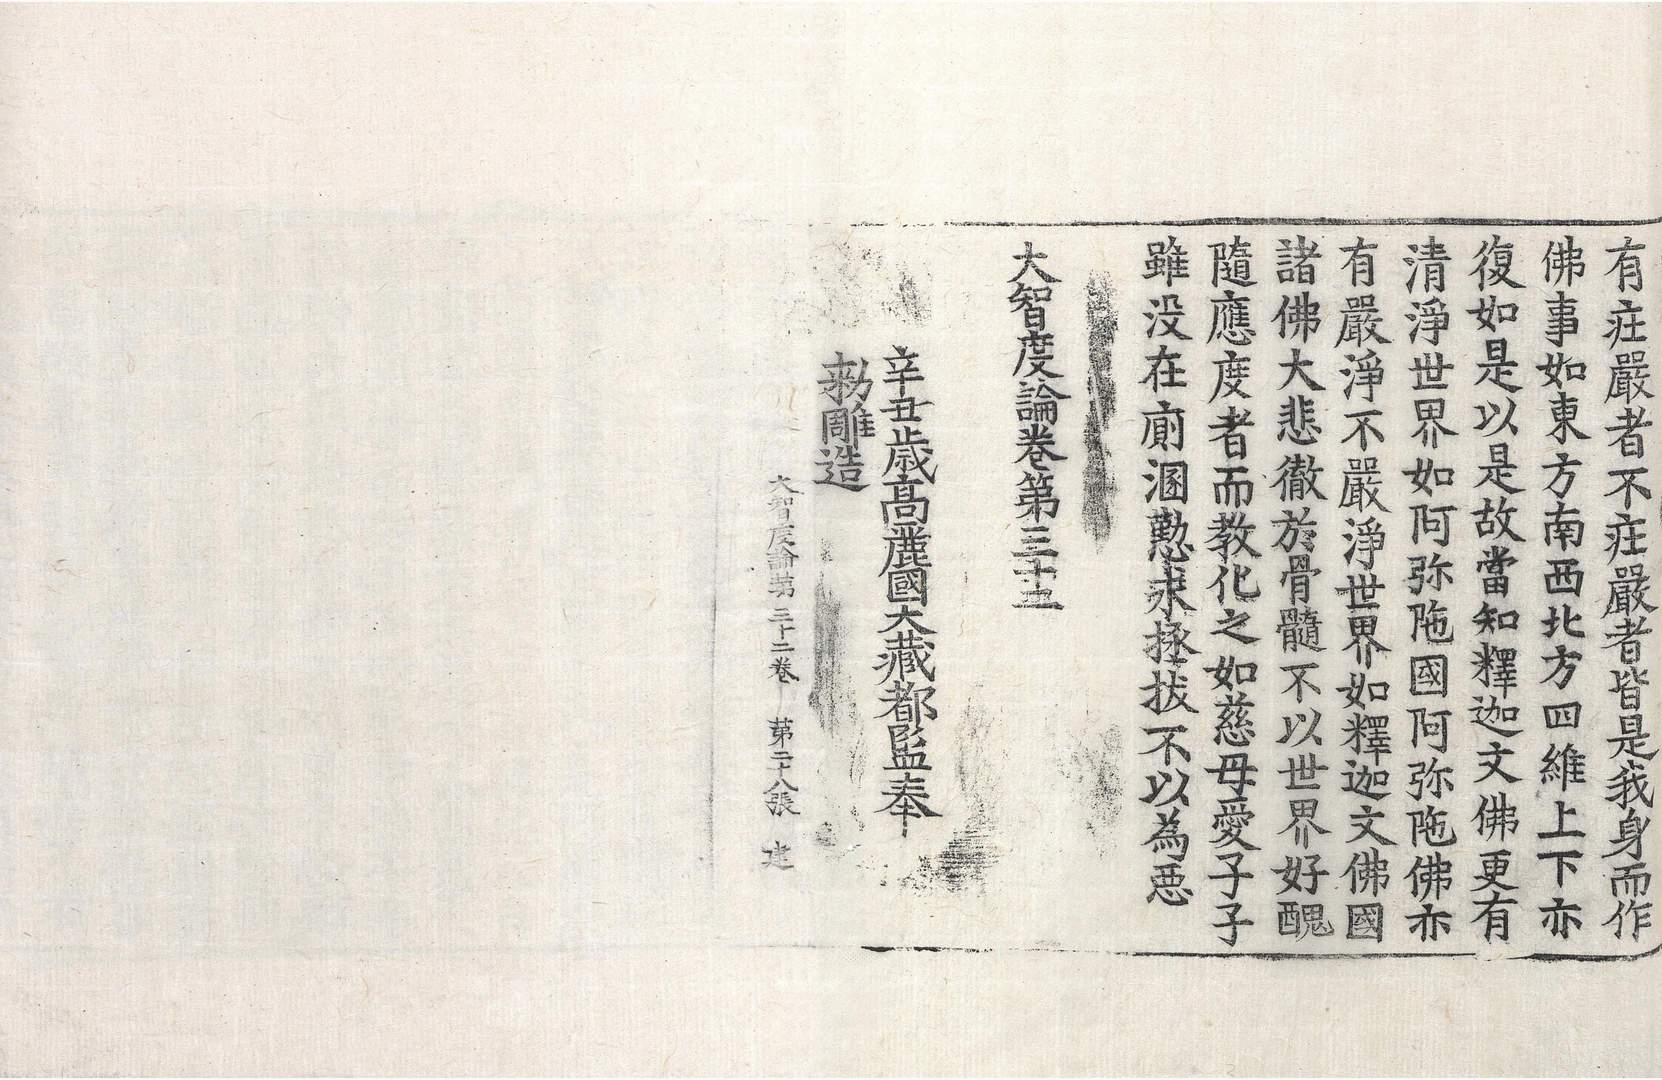 有㽵嚴者不㽵嚴者皆是我身而作
佛事如東方南西北方四維上下亦
復如是以是故當知釋迦文佛更有
清淨世界如阿弥陁國阿弥陁佛亦
有嚴淨不嚴淨世界如釋迦文佛國
諸佛大悲徹於骨髓不以世界好醜
隨應度者而教化之如慈母愛子子
雖没在廁溷懃求拯拔不以為惡
大智度論卷第三十
辛丑歲高麗國大藏都監奉
勑雕造
大智度論第三十二卷 第二十八張 建